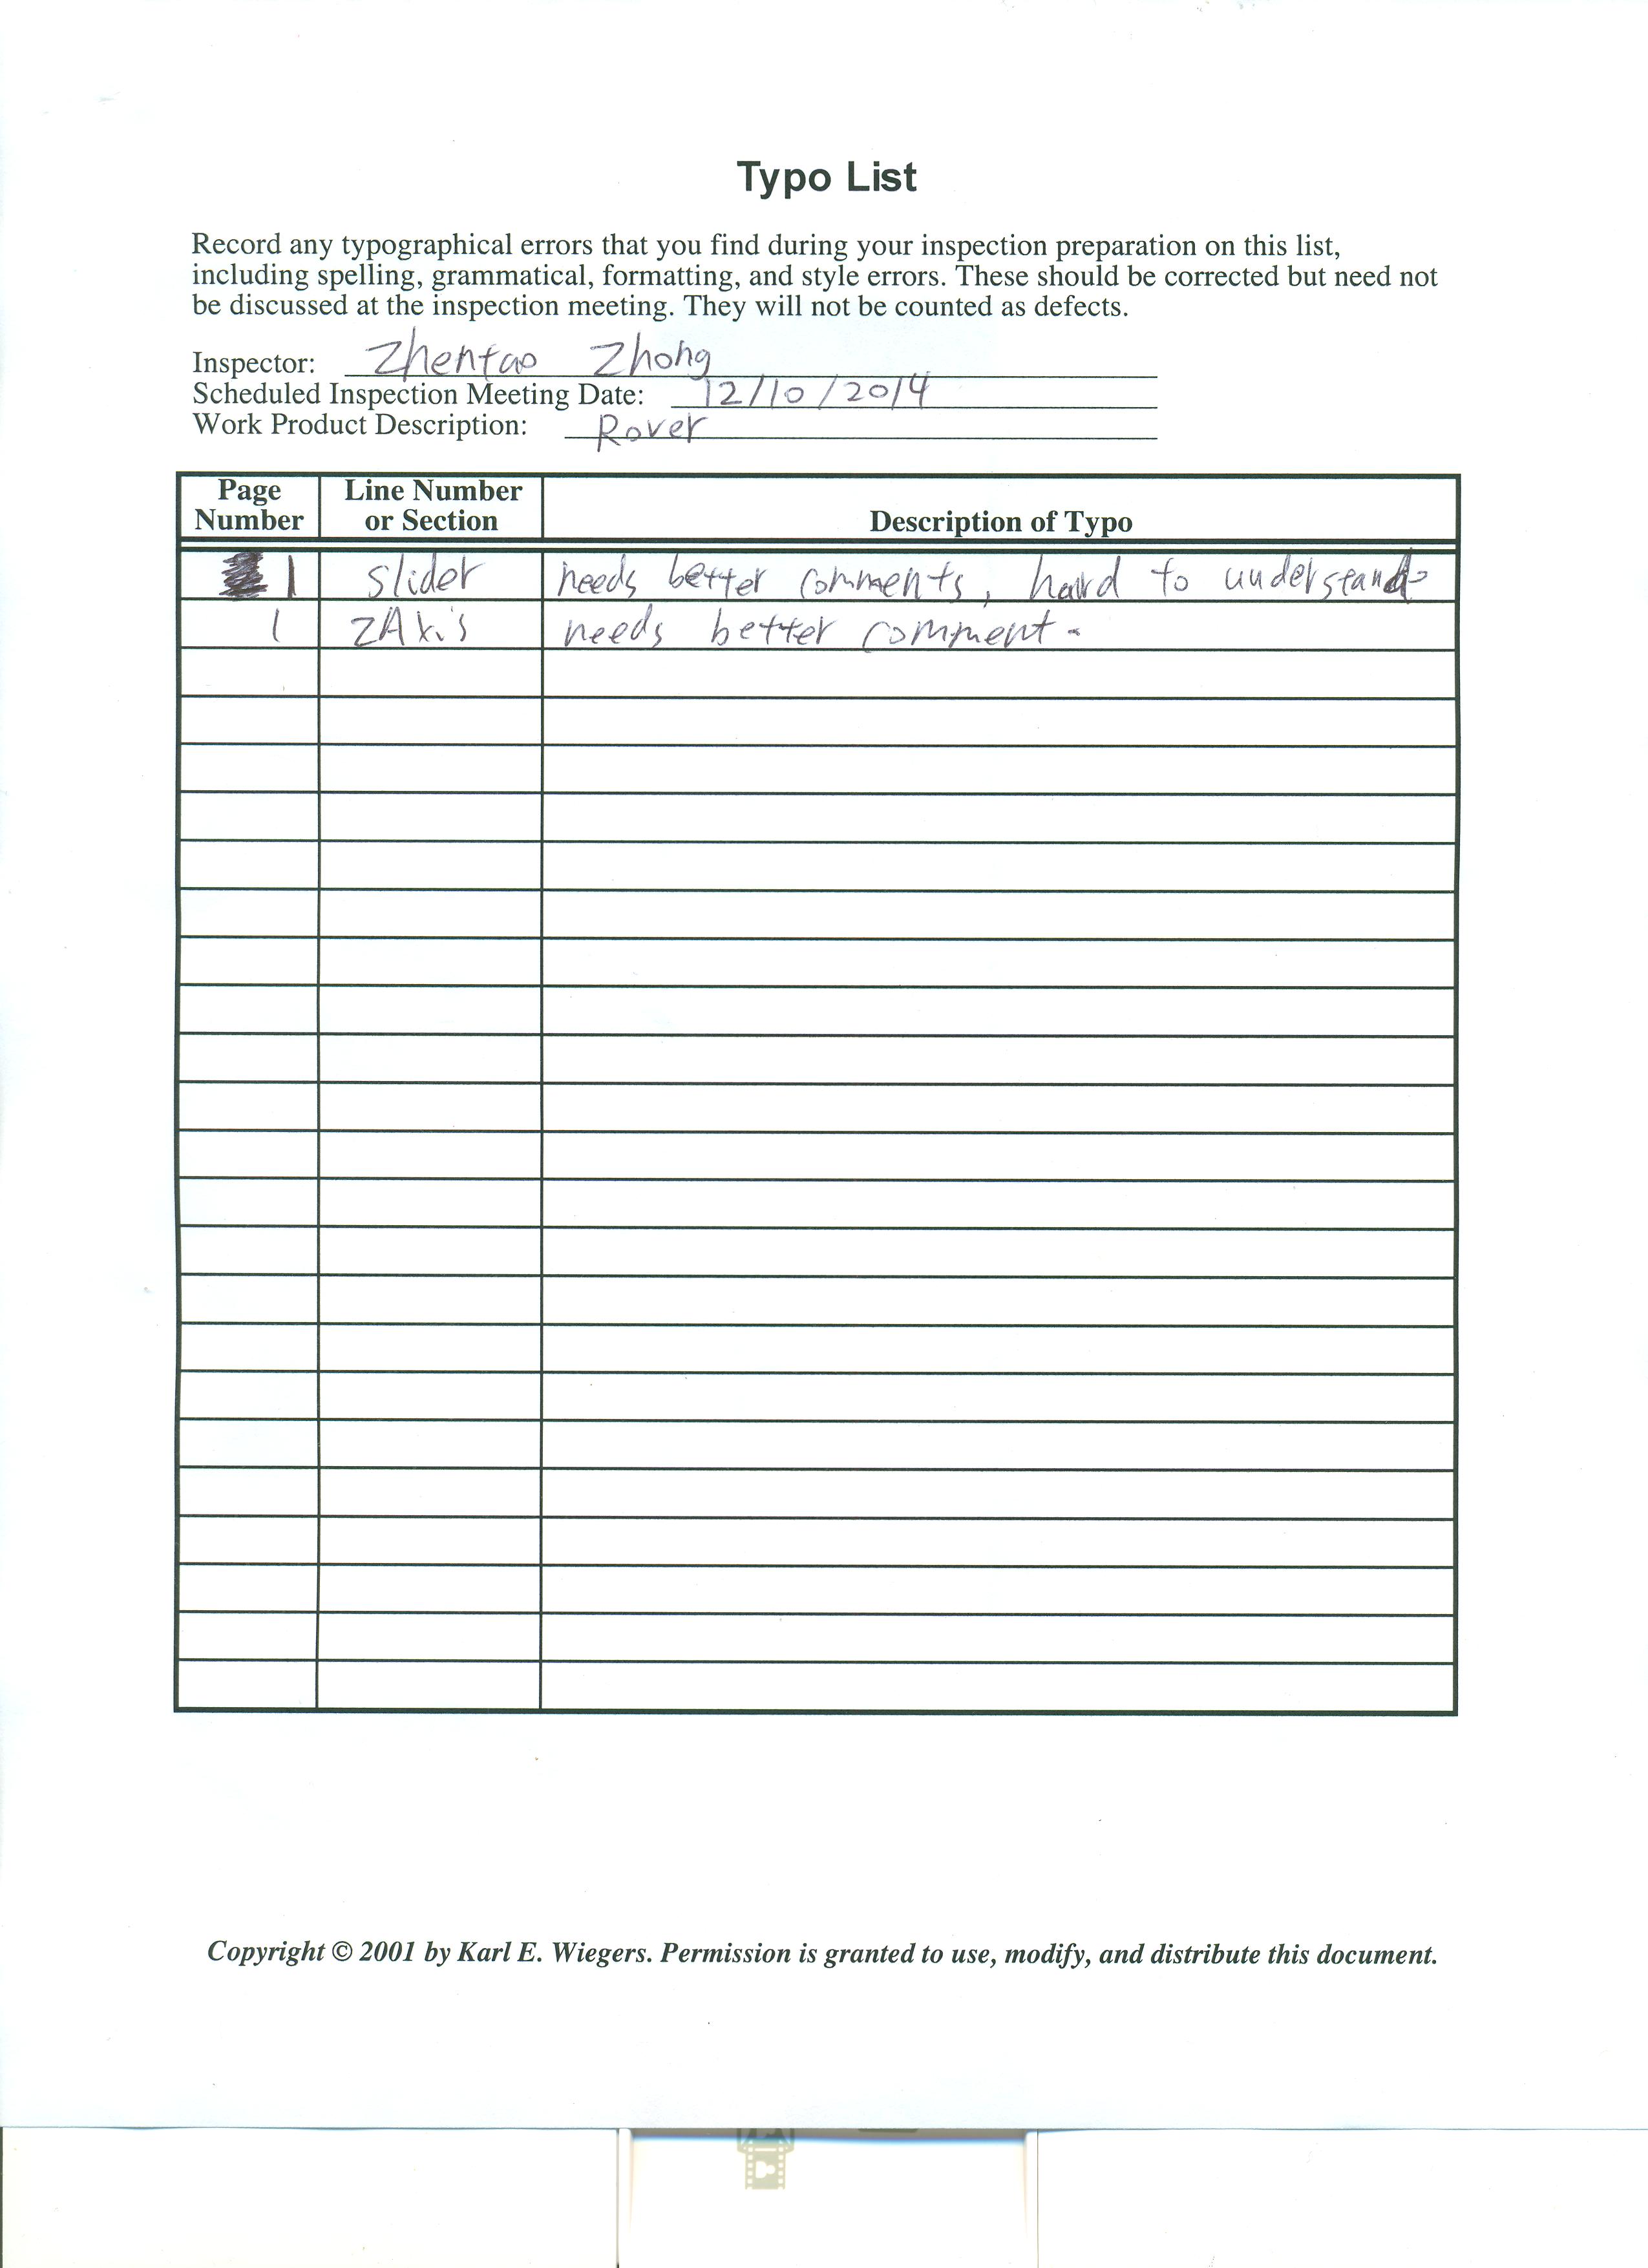 Typo List
Record any typographical errors that you find during your inspection preparation on this list,
including spelling, grammatical, formatting, and style errors. These should be corrected but need not
be discussed at the inspection meeting. They will not be counted as defects.
Inspector: Zhentao Zhong
Scheduled Inspection Meeting Date: 12/10/2014
Work Product Description: Rover
Page Number Line Number or Section Description of Typo
1 slider needs better comments, hard to understand
1 zAxis needs better comment.
Copyright © 2001 by Karl E. Wiegers. Permission is granted to use, modify, and distribute this document.